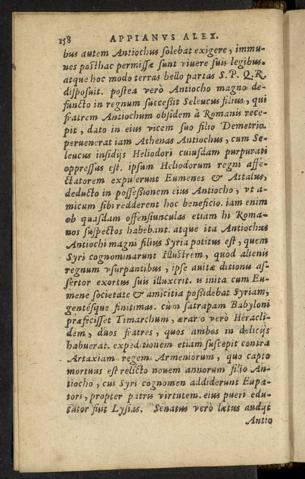 158 APPIANVS ALEX.
bus autem Antiochus solebat exigere, immu-
nes posthac permissæ sunt viuere suis legibus.
atque hoc modo terras bello partas S. P. Q. R.
disposuit. postea verò Antiocho magno de-
functo in regnum successit Seleucus filius, qui
fratrem Antiochum obsidem à Romanis rece-
pit, dato in eius vicem suo filio Demetrio.
peruenerat iam Athenas Antiochus, cum Se-
leucus insidijs Heliodori cuiusdam purpurati
oppressus est. ipsum Heliodorum regni affe-
ctatorem expulerunt Eumenes & Attalus,
deducto in possessionem eius Antiocho, vt a-
micum sibi redderent hoc beneficio. iam enim
ob quasdam offensiunculas etiam hi Roma-
nos suspectos habebant. atque ita Antiochus
Antiochi magni filius Syria potitus est, quem
Syri cognominarunt Illustrem, quòd alienis
regnum vsurpantibus, ipse auitæ ditionis as-
sertor exortus suis illuxerit. is inita cum Eu-
mene societate & amicitia possidebat Syriam,
gentesque finitimas. cùm satrapam Babyloni
præfecisset Timarchum, ærario verò Heracli-
dem, duos fratres, quos ambos in delicijs
habuerat. expeditionem etiam suscepit contra
Artaxiam regem Armeniorum, quo capto
mortuus est relicto nouem annorum filio An-
tiocho, cui Syri cognomen addiderunt Eupa-
tori, propter patris virtutem. eius pueri edu-
cator fuit Lysias. Senatus verò lætus audijt
Antio